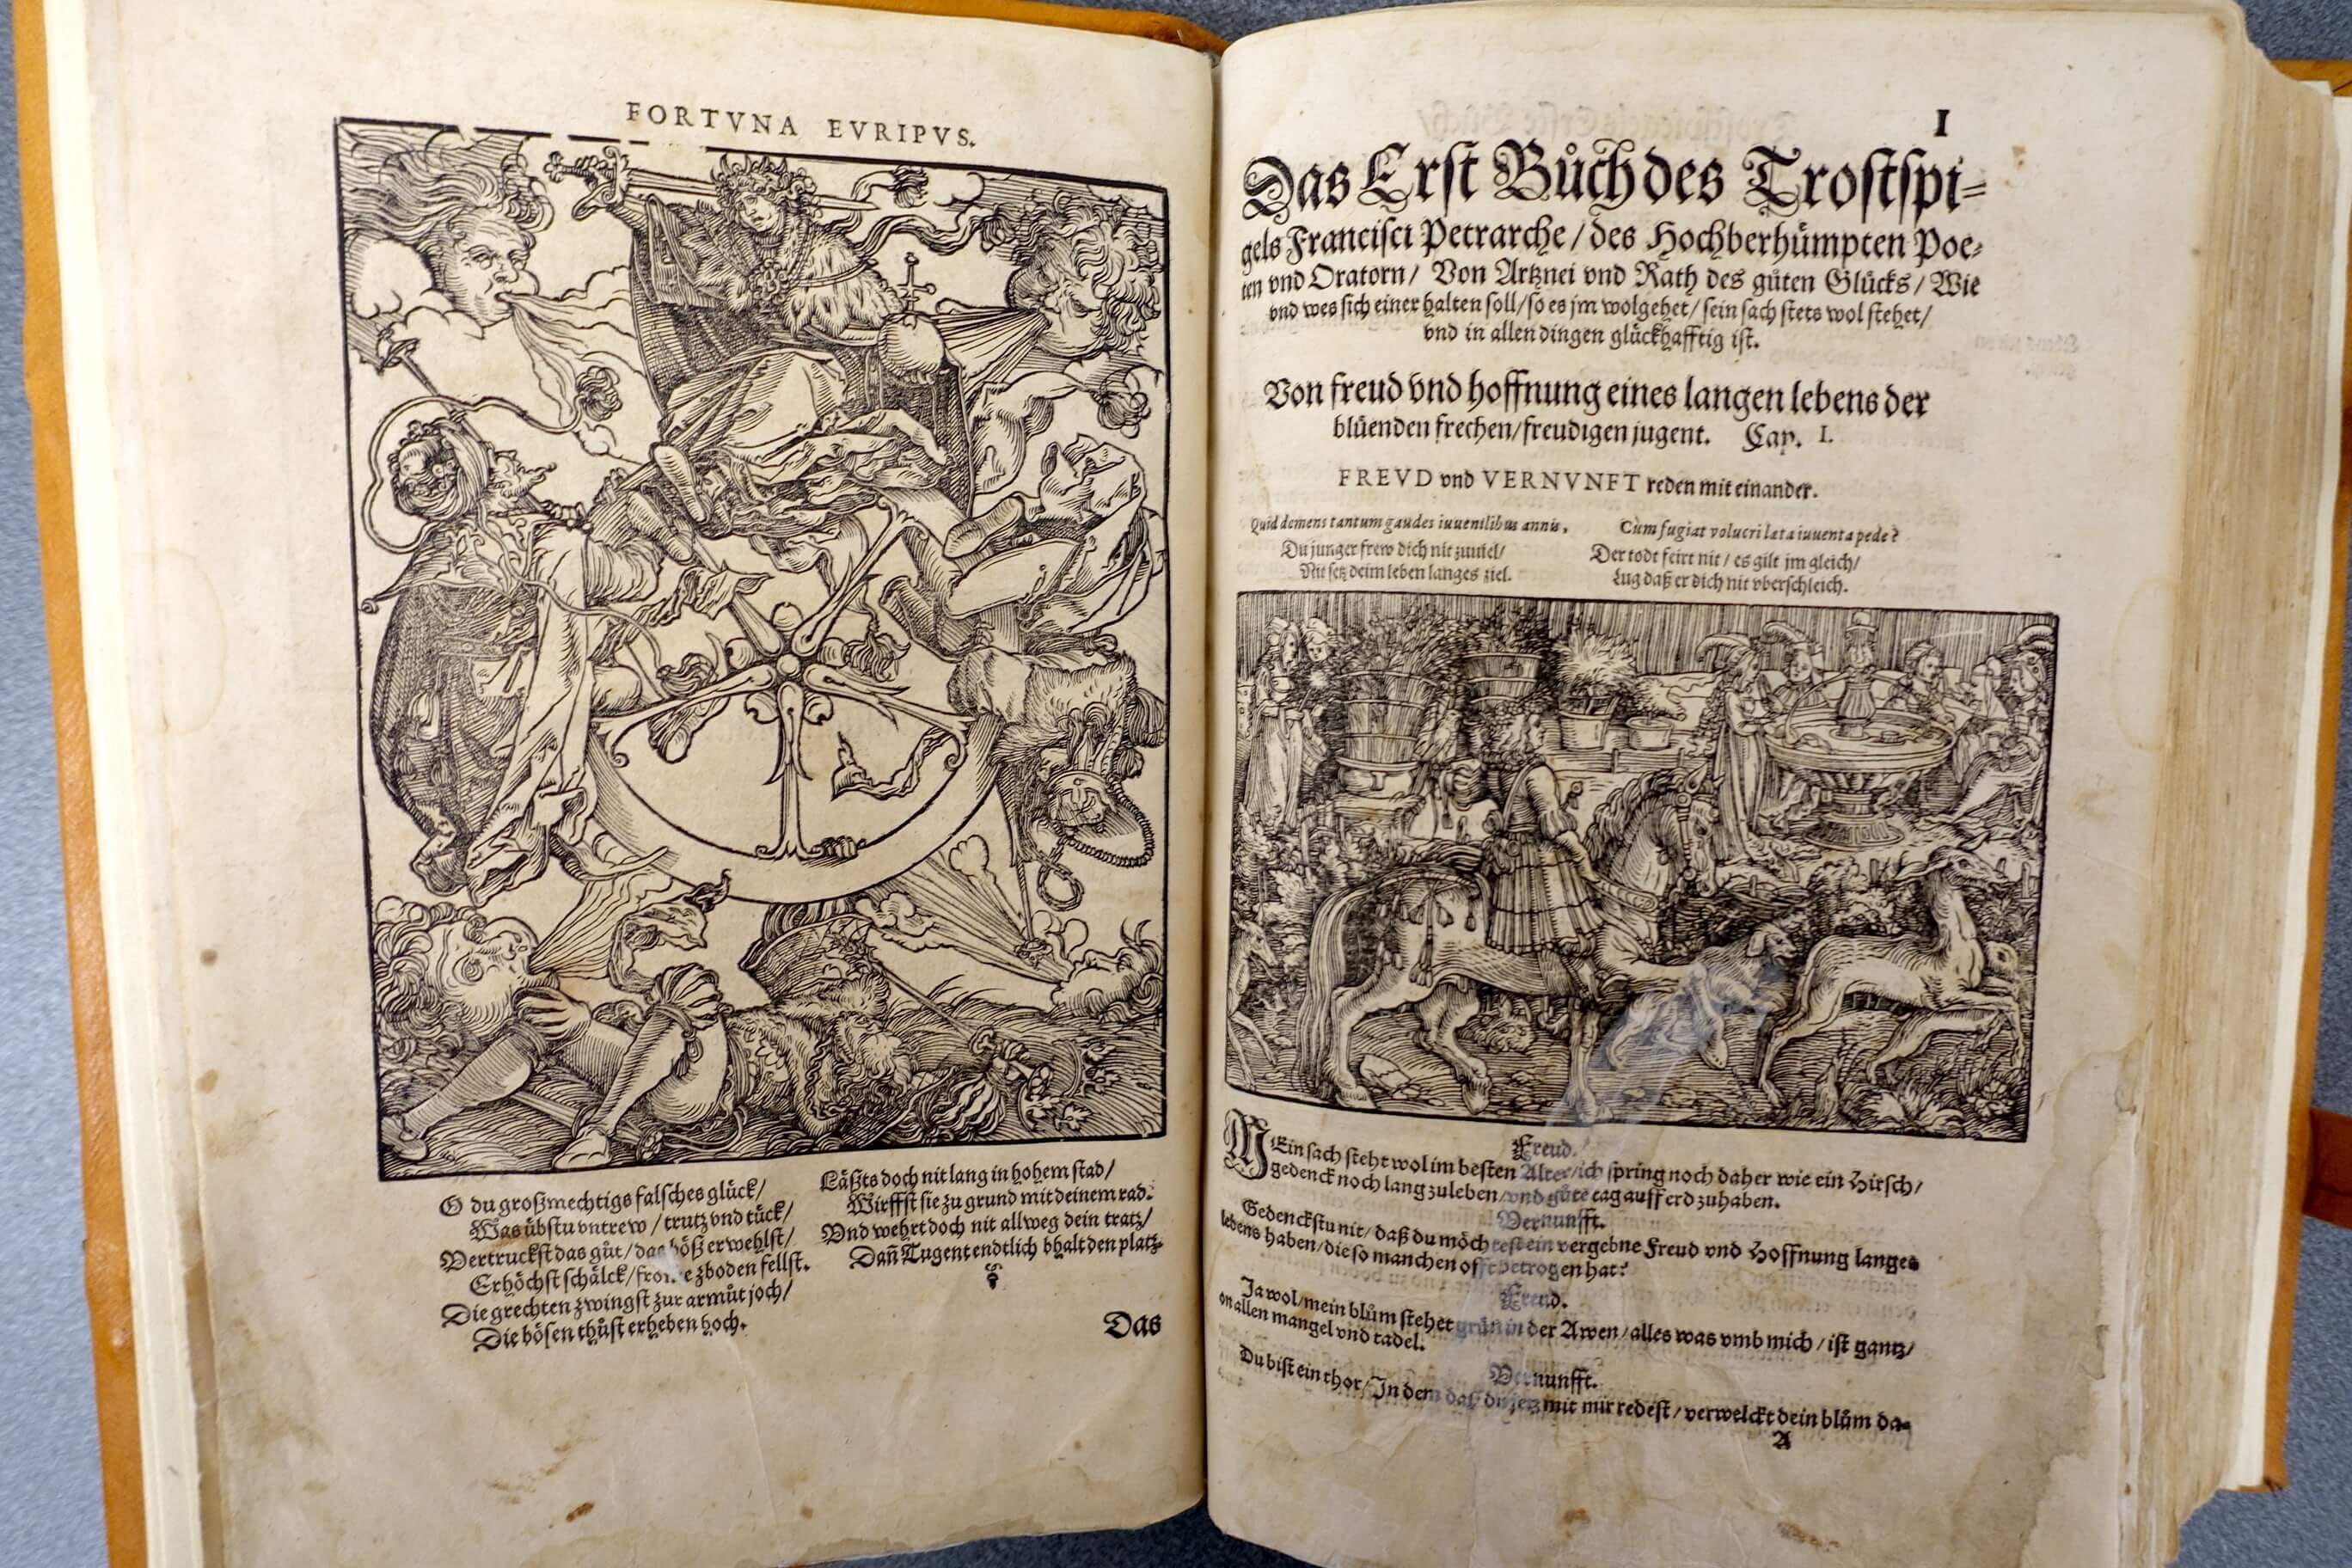 FORTVNA EVRIPVS.
O du großmechtigs falsches glück/
Was übstu vntrew / trutz vnd tück/
Vertruckst das gůt / das böß erwehlst/
Erhöchst schälck / zboden fellst.
Die grechten zwingst zur armůt joch/
Die bösen thůst erheben hoch.
Läßts doch nit lang in hohem stad/
Wirffst sie zu grund mit deinem rad.
Vnd wehrt doch nit allweg dein tratz/
Dañ Tugent endtlich bhalt den platz.
Das
I
Das Erst Bůch des Trostspi-
gels Francisci Petrarche / des Hochberhümpten Poe-
ten vnd Oratorn / Von Artznei vnd Rath des gůten Glücks / Wie
vnd wes sich einer halten soll / so es jm wolgehet / sein sach stets wol stehet /
vnd in allen dingen glückhafftig ist.
Von freud vnd hoffnung eines langen lebens der
blüenden frechen / freudigen jugent. Cap. I.
FREVD vnd VERNVNFT reden mit einander.
Quid demens tantum gaudes iuuenilibus annis,
Cùm fugiat volucri læta iuuenta pede?
Du junger frew dich nit zuuiel /
Nit setz deim leben langes ziel.
Der todt feirt nit / es gilt jm gleich /
Lug daß er dich nit vberschleich.
Freud.
MEin sach steht wol im besten Alter / ich spring noch daher wie ein Hirsch /
gedenck noch lang zuleben / vnd gůte tag auff erd zuhaben.
Vernunfft.
Gedenckstu nit / daß du möchtest ein vergebne Freud vnd Hoffnung langes
lebens haben / die so manchen offt betrogen hat?
Freud.
Ja wol / mein blům stehet grün in der Awen / alles was vmb mich / ist gantz /
on allen mangel vnd tadel.
Vernunfft.
Du bist ein thor / In dem daß du jetz mit mir redest / verwelckt dein blům da-
A